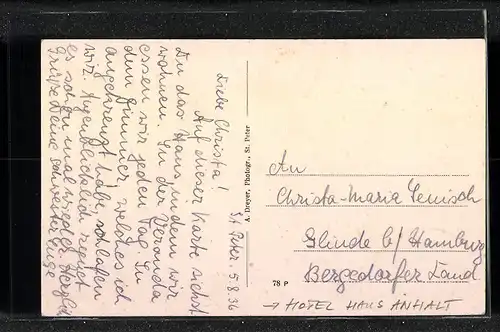 St. Peter. 5.8.36
Liebe Christa!
Auf dieser Karte siehst
Du das Haus, indem wir
wohnen. In der Veranda
essen wir jeden Tag. In
dem Zimmer, welches ich
angekreuzt habe schlafen
wir. Augenblicklich regnet
es schon mal wieder. Herzliche
Grüße Deine Schwester Inge
A. Dreyer, Photogr., St. Peter
An
Christa-Maria
Glinde b/ Hamburg
Bergedorfer Land
78 P
→ HOTEL HAUS ANHALT